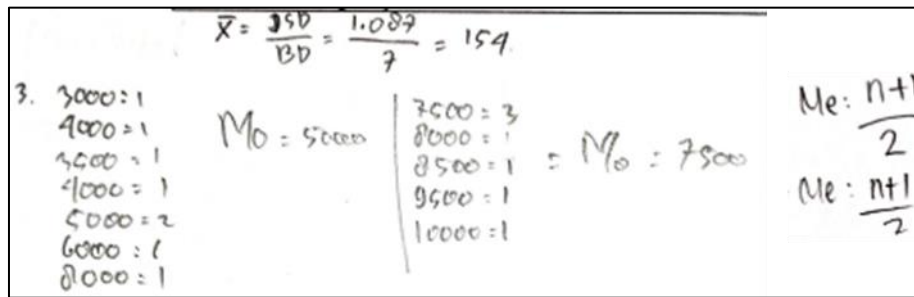 X̄ = JSD/BD = 1.087/7 = 154.
3. 3000 : 1
4000 = 1
3500 = 1
4000 = 1
5000 = 2
6000 : 1
8000 = 1
Mo = 50000
7500 = 3
8000 = 1
8500 = 1
9500 = 1
10000 = 1
= Mo = 7500
Me : n+1/2
Me : n+1/2